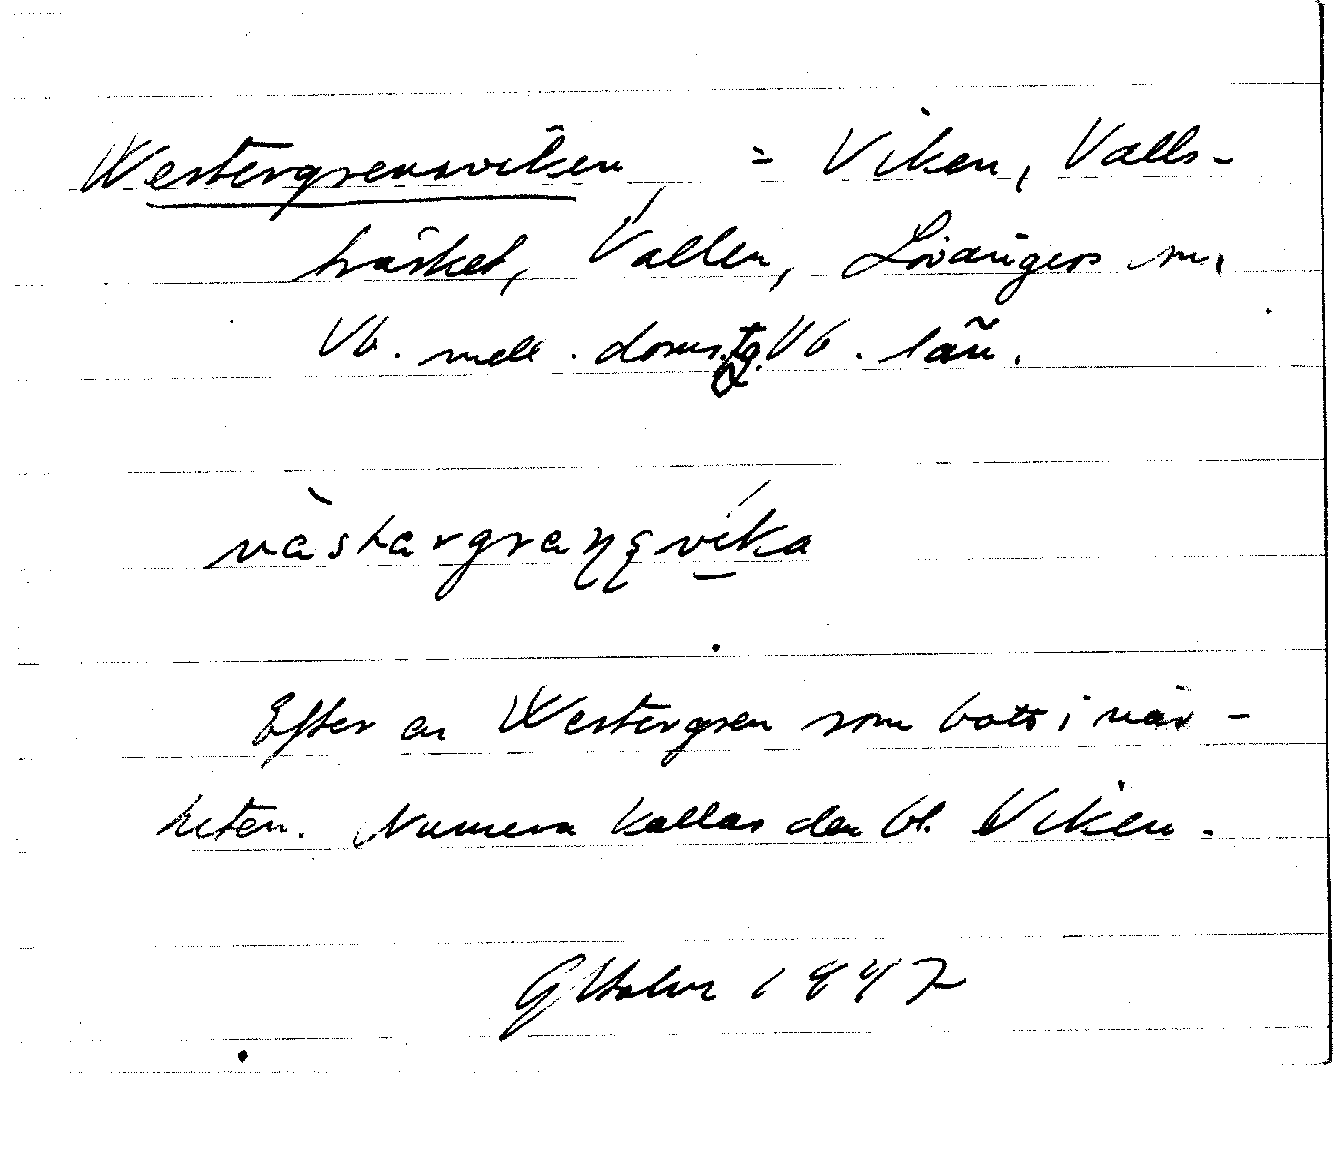 Westergrensviken = Viken, Valls-
träsket, Vallen, Lövångers sn,
Vb. mell. doms.tg. Vb. län.
västargranŋşvika
Efter en Westergren som bott i när-
heten. Numera kallas den bl. Viken.
G Holm 1947